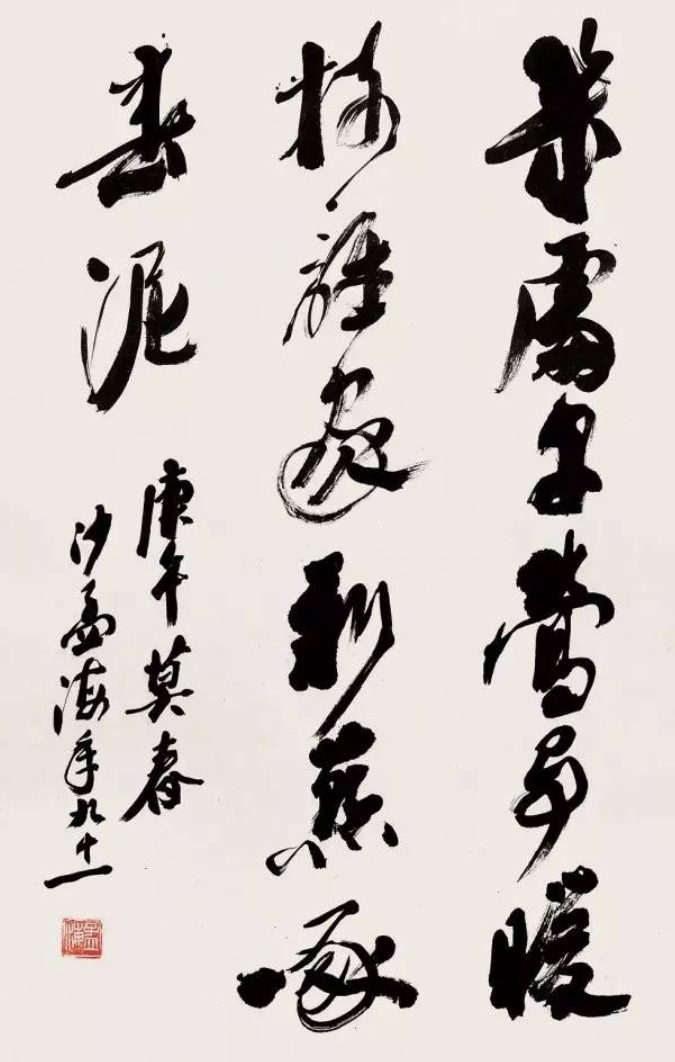 几處早鶯爭暖
樹誰家新燕啄
春泥
庚午莫春
沙孟海年九十一
孟海